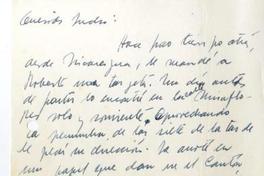 Querido Pedro:
Hace poco tiempo atrás,
desde Nicaragua, le mandé a
Roberto una tarjeta. Un día antes
de partir lo encontré en la calle Miraflo-
res solo y sonriente, aprovechando
la penumbra de las siete de la tarde
le pedí su dirección. La anoté en
un papel que dan en el